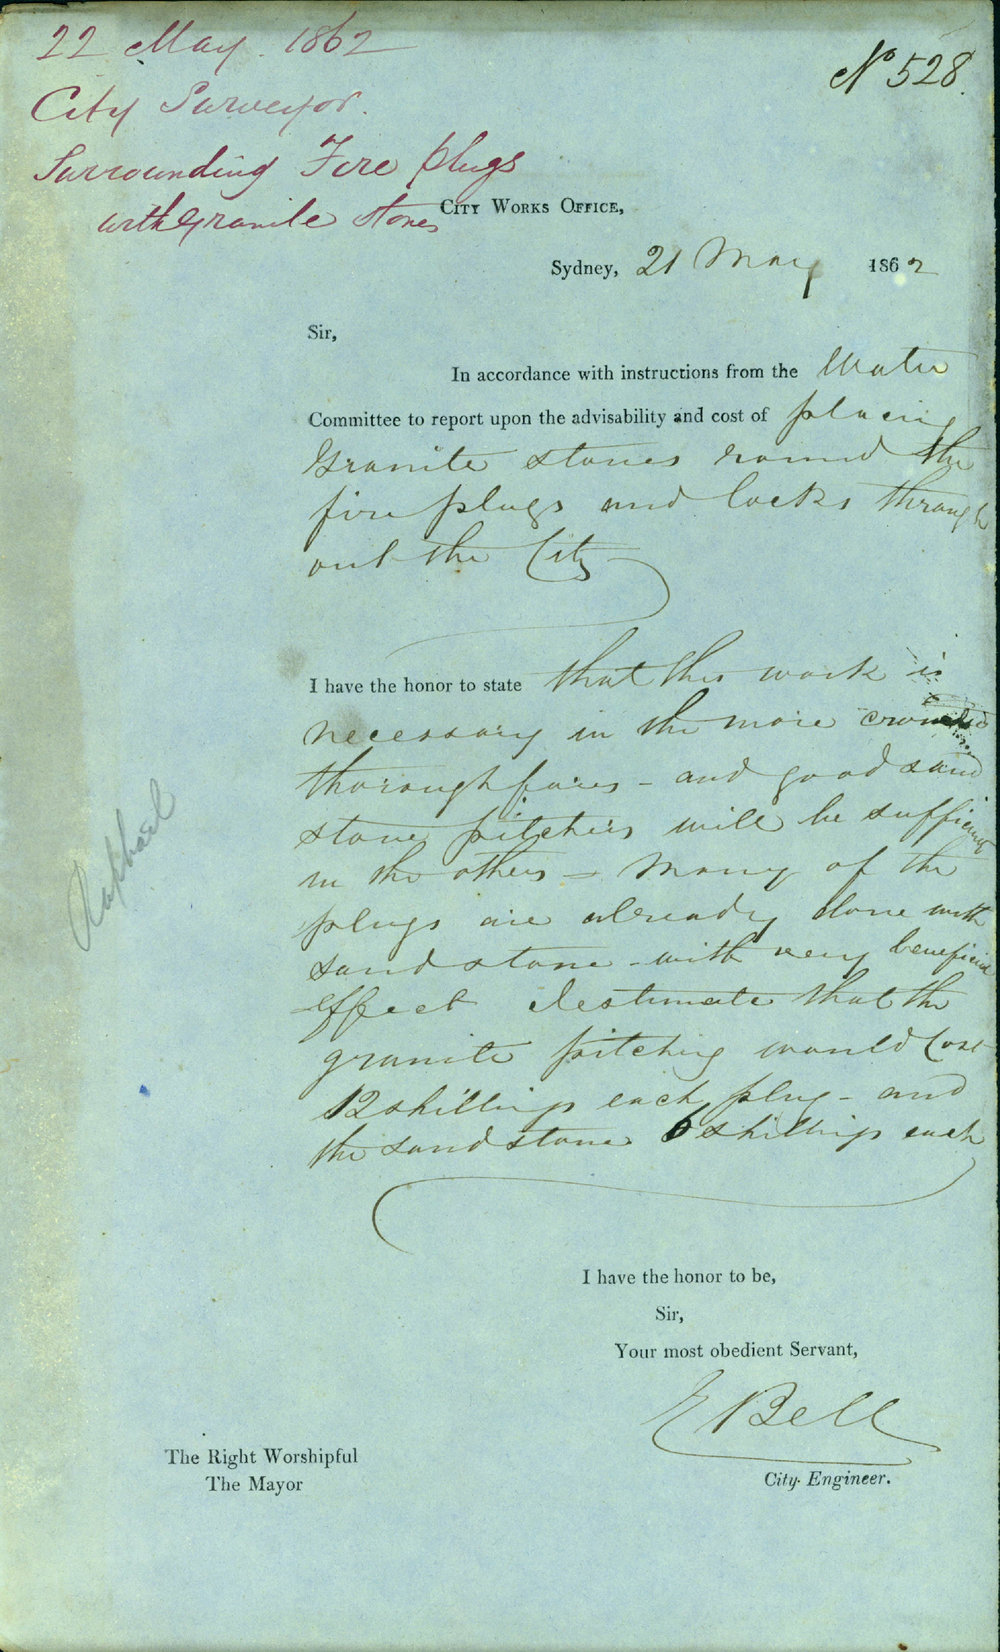 22 May 1862
No 528.
City Surveyor.
Surrounding Fire plugs
with Granite Stones
City Works Office,
Sydney, 21 May 1862
Sir,
In accordance with instructions from the Water
Committee to report upon the advisability and cost of placing
Granite stones round the
fire plugs and cocks through
out the City
I have the honor to state that this work is
necessary in the more crowded
thoroughfares - and good sand
stone pitchers will be sufficient
in the others - Many of the
plugs are already done with
sandstone - with very beneficial
effect I estimate that the
granite pitching would cost
12 shillings each plug - and
the sandstone 6 shillings each
Raphael
I have the honor to be,
Sir,
Your most obedient Servant,
E Bell
City Engineer.
The Right Worshipful
The Mayor